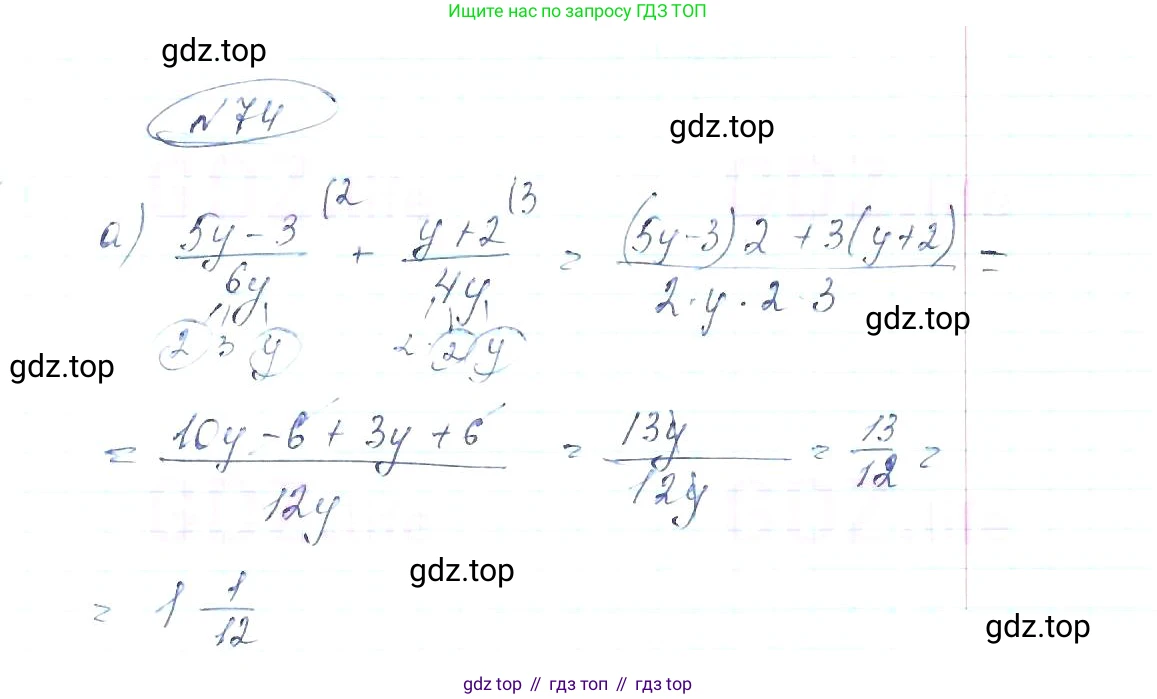 Ищите нас по запросу ГДЗ ТОП
gdz.top
№ 74
gdz.top
а) (5y - 3)/(6y) (2 + (y + 2)/(4y) (3 = ((5y-3) 2 + 3(y+2))/(2 · y · 2 · 3) =
2 3 y 2 · 2 y
gdz.top
gdz.top
= (10y - 6 + 3y + 6)/(12y) = 13y/12y = 13/12 =
gdz.top
= 1 1/12
gdz.top
gdz top // гдз топ // gdz top